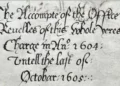 The Accompte of the Office
Revelles of this whole yeres
Charge in Ano 1604:
Untell the last of
October 1605: